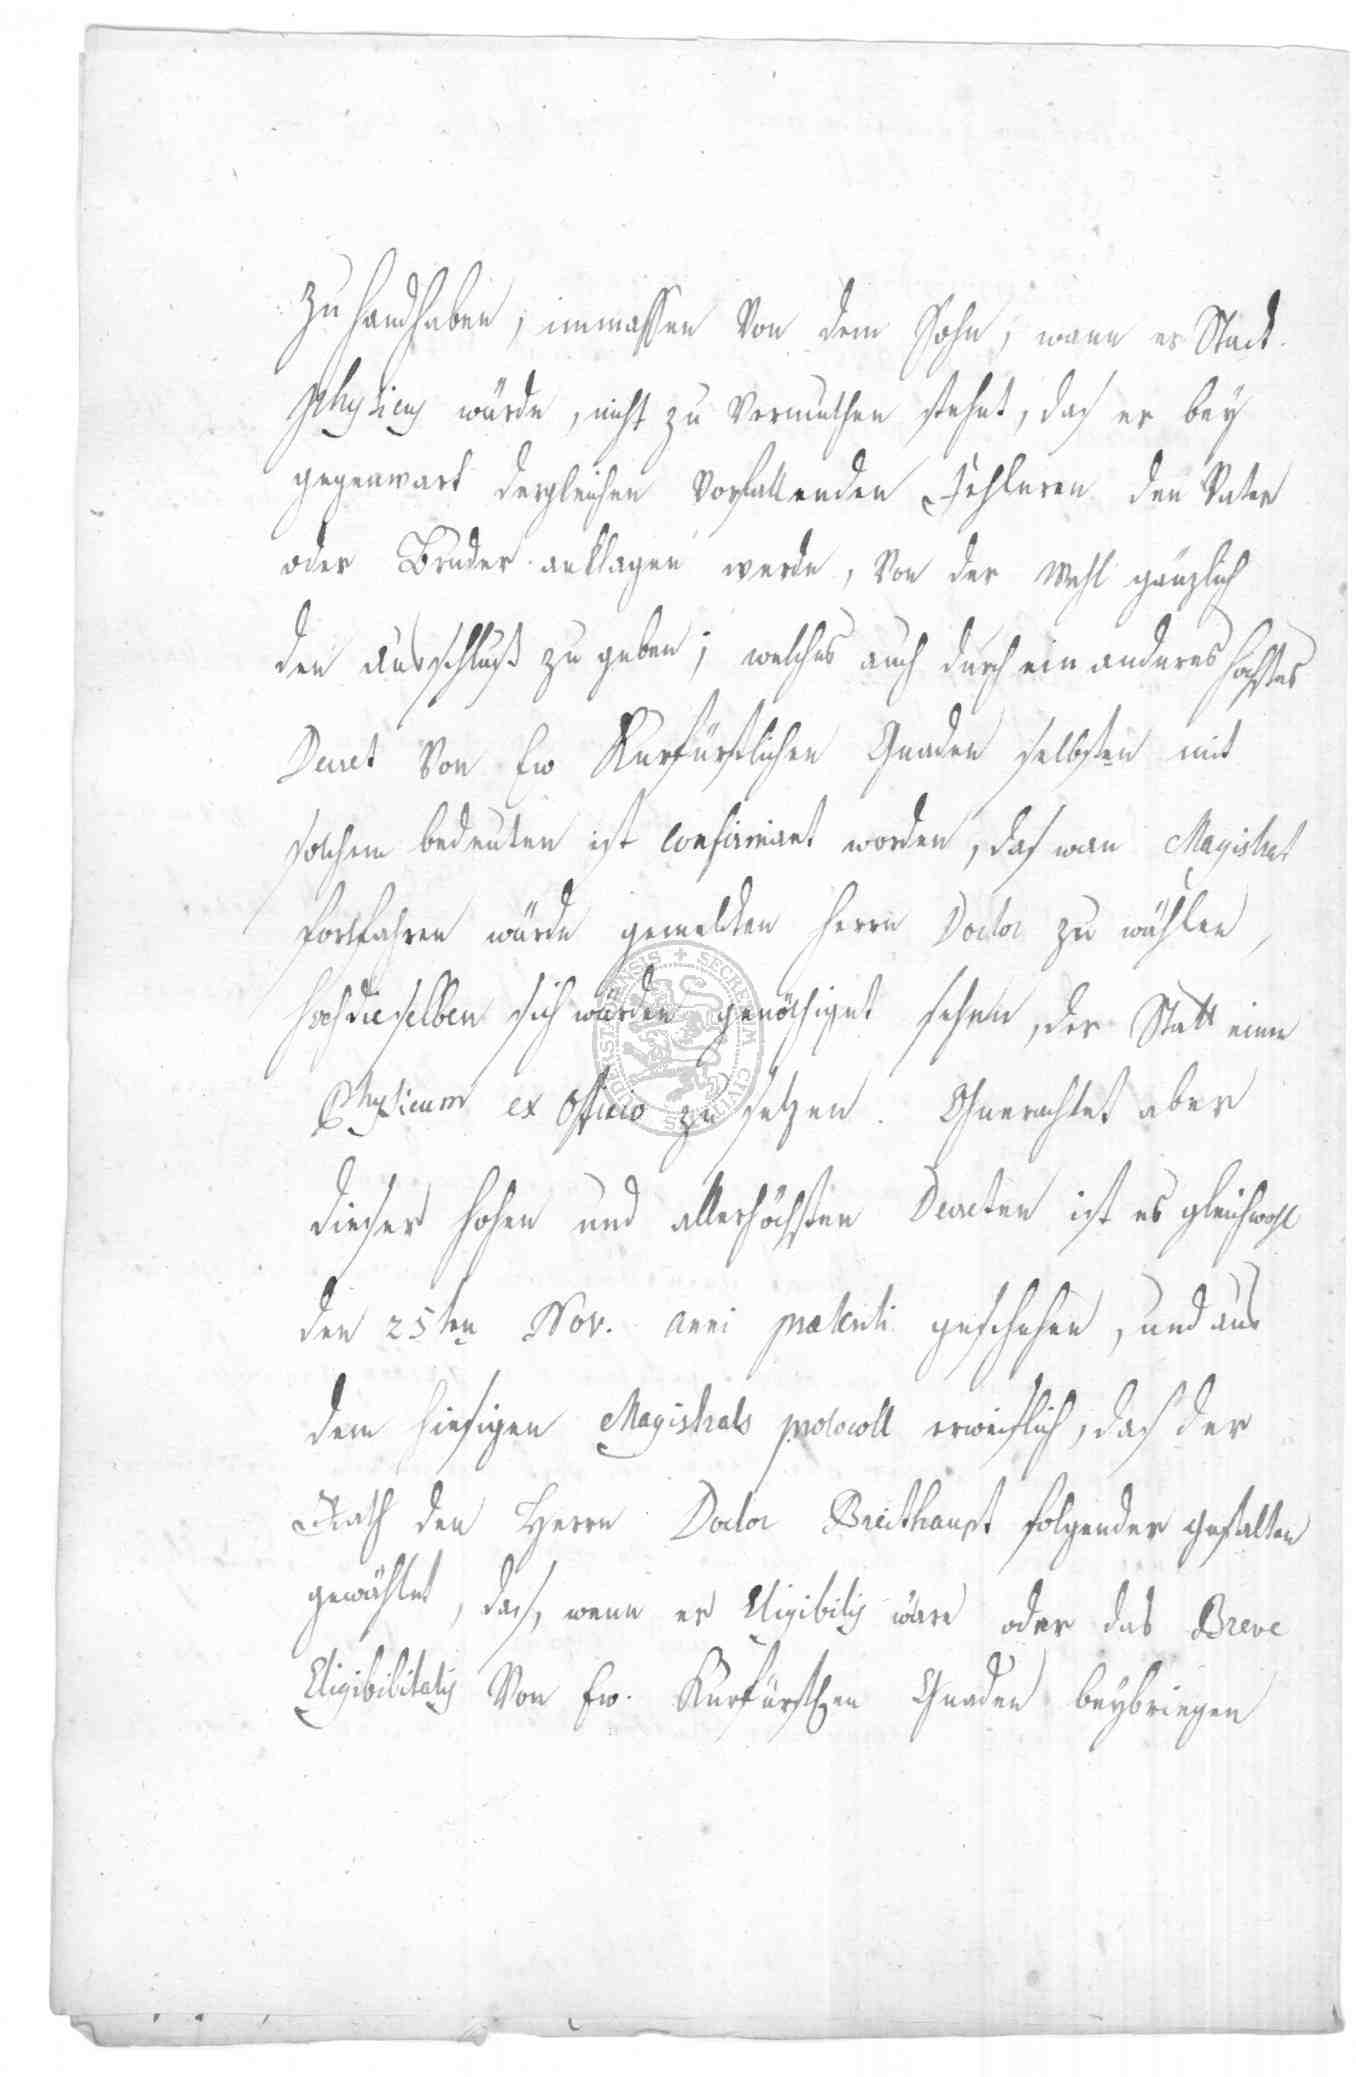 zu handhaben, immassen Von dem Sohn, wann er Stadt
Physicus würde, nicht zu Vermuthen stehet, das er bey
gegenwart dergleichen Vorfallenden Fehleren den Vater
oder Bruder anklagen werde, Von der Wahl gänzlich
den Ausschluß zu geben; welches auch durch ein anderes höchstes
Decret Von Ew Kurfürstlichen Gnaden selbsten mit
solchem bedeuten ist confirmiret worden, das wan Magistrat
fortfahren würde gemeldten Herrn Doctor zu wählen,
Hochdieselben sich würden genöthiget sehen, der Statt einen
Physicum ex Officio zu setzen. Ohnerachtet aber
dieser hohen und allerhöchsten Decreten ist es gleichwohl
den 25ten Nov. anni praeteriti geschehen, und aus
dem hiesigen Magistrats protocoll erweislich, das der
Rath den Herrn Doctor Breithaupt folgender gestalten
gewählet, das, wenn er Eligibilis wäre oder das Breve
Eligibilitatis Von Ew. Kurfürstlichen Gnaden beybringen
SECRETUM CIVITATIS DUDERSTADENSIS